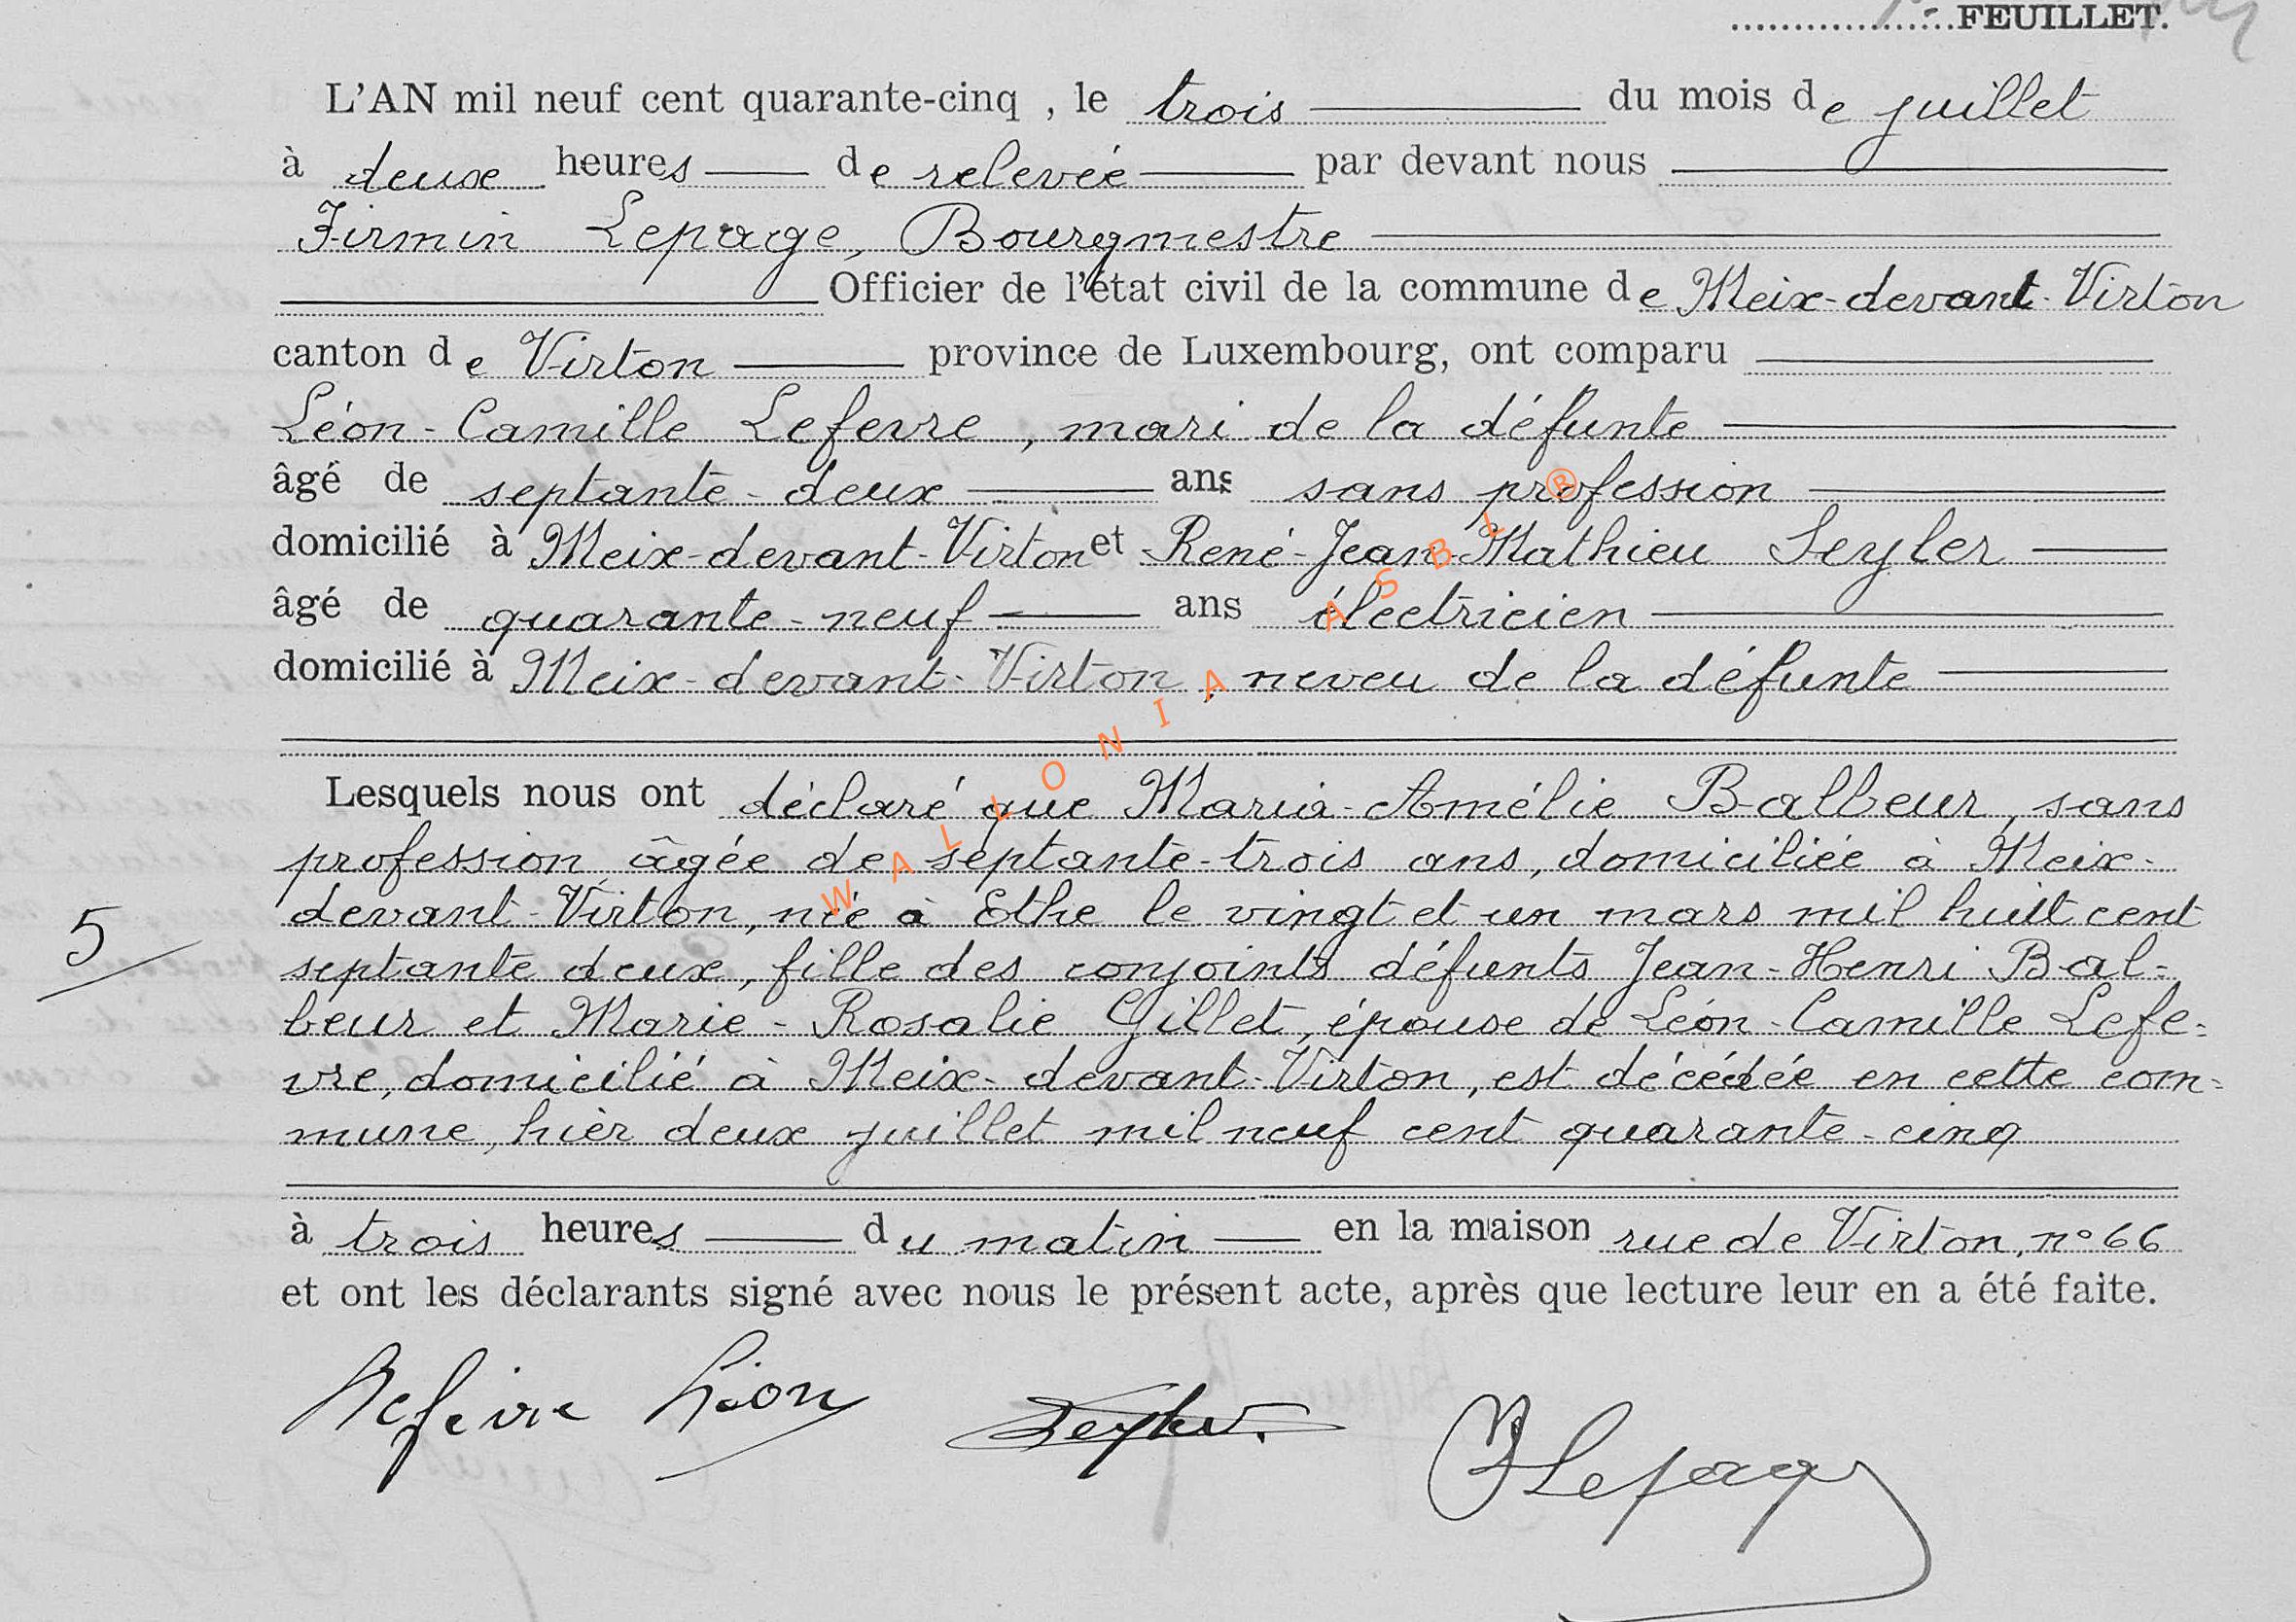 FEUILLET.
L'AN mil neuf cent quarante-cinq , le trois du mois de juillet
à deux heures de relevée par devant nous
Firmin Lepage, Bourgmestre
Officier de l'état civil de la commune de Meix-devant-Virton
canton de Virton province de Luxembourg, ont comparu
Léon-Camille Lefevre, mari de la défunte
âgé de septante-deux ans sans profession
domicilié à Meix-devant-Virton et René-Jean-Mathieu Seyler
âgé de quarante-neuf ans électricien
domicilié à Meix-devant-Virton, neveu de la défunte
Lesquels nous ont déclaré que Maria-Amélie Balbeur, sans
profession, âgée de septante-trois ans, domiciliée à Meix-
devant-Virton, née à Ethe le vingt et un mars mil huit cent
5
septante deux, fille des conjoints défunts Jean-Henri Bal=
beur et Marie-Rosalie Gillet, épouse de Léon-Camille Lefe=
vre, domicilié à Meix-devant-Virton, est décédée en cette com=
mune, hier deux juillet mil neuf cent quarante-cinq
à trois heures du matin en la maison rue de Virton, n° 66
et ont les déclarants signé avec nous le présent acte, après que lecture leur en a été faite.
Lefevre Léon Seyler. F Lepage
WALLONIA ASBL ®